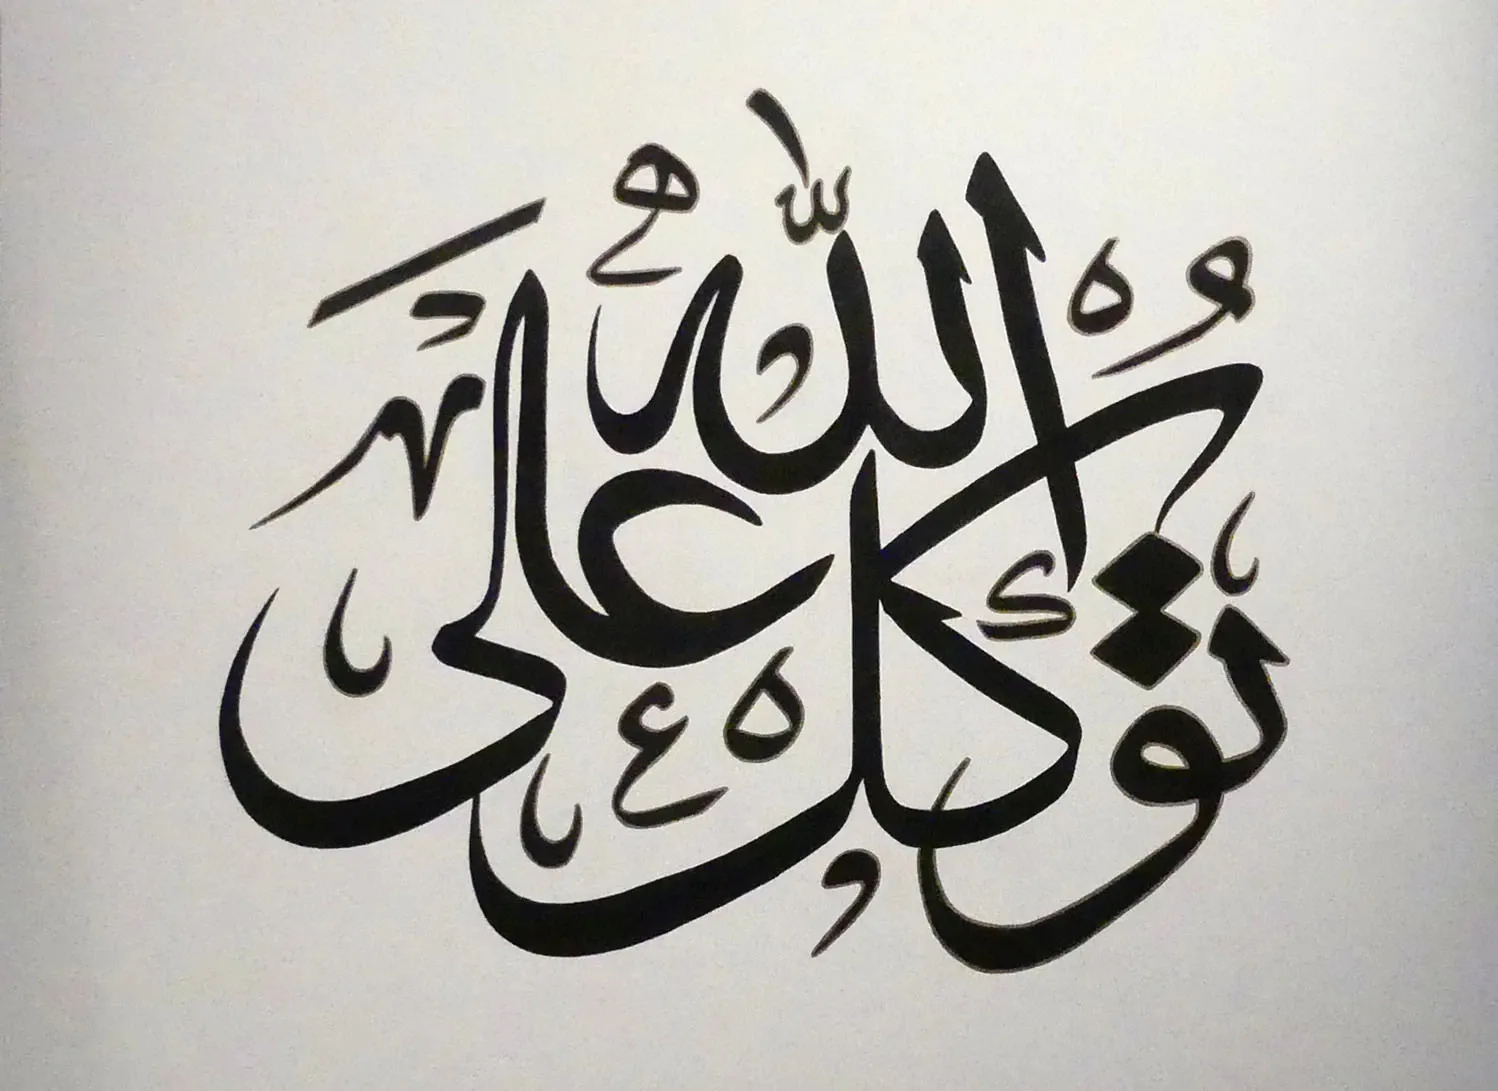 توكل على الله